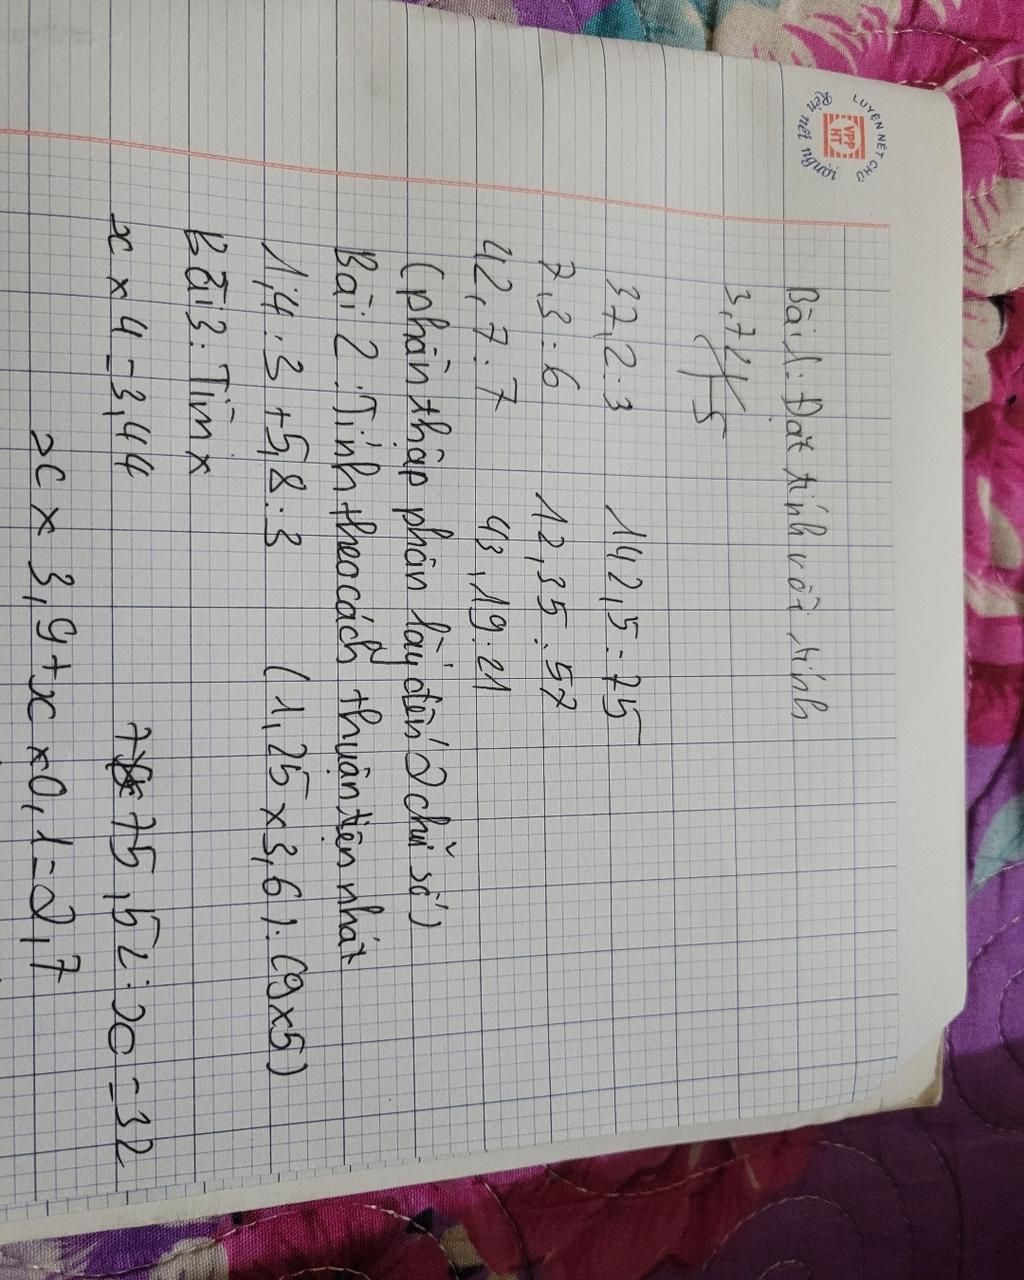 LUYỆN NÉT CHỮ
VPP
HT
Rèn nét người
Bài 1: Đặt tính rồi tính
37,2:3 142,5:75
7,3:6 12,35:57
42,7:7 43,19:21
(phần thập phân lấy đến 2 chữ số)
Bài 2: Tính theo cách thuận tiện nhất
1,4:3+5,8:3 (1,25x3,6):(9x5)
Bài 3: Tìm x
x x 4=3,44 75,52:x=32
x x 3,9+x x0,1=2,7